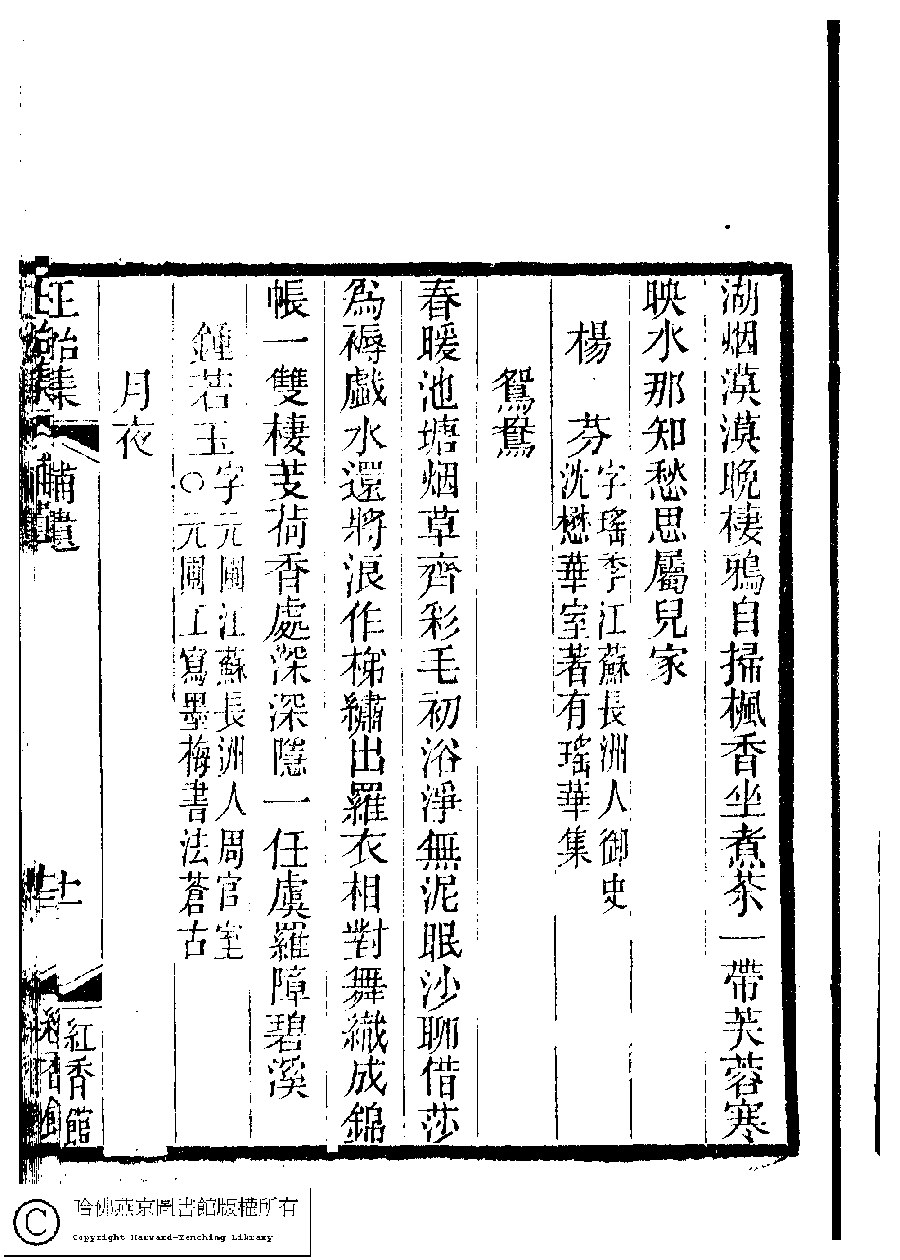 湖烟漠漠晚棲鴉自掃楓香坐煮茶一帶芙蓉寒
映水那知愁思屬兒家
楊芬字瑤季江蘇長洲人御史
沈懋華室著有瑤華集
鴛鴦
春暖池塘烟草齊彩毛初浴淨無泥眠沙聊借莎
為褥戲水還將浪作梯繡出羅衣相對舞織成錦
帳一雙棲芰荷香處深深隱一任虞羅障碧溪
鍾若玉字元圃江蘇長洲人周官室
○元圃工寫墨梅書法蒼古
月夜
正始集
補遺
十一
紅香館
哈佛燕京圖書館版權所有
Copyright Harvard-Yenching Library